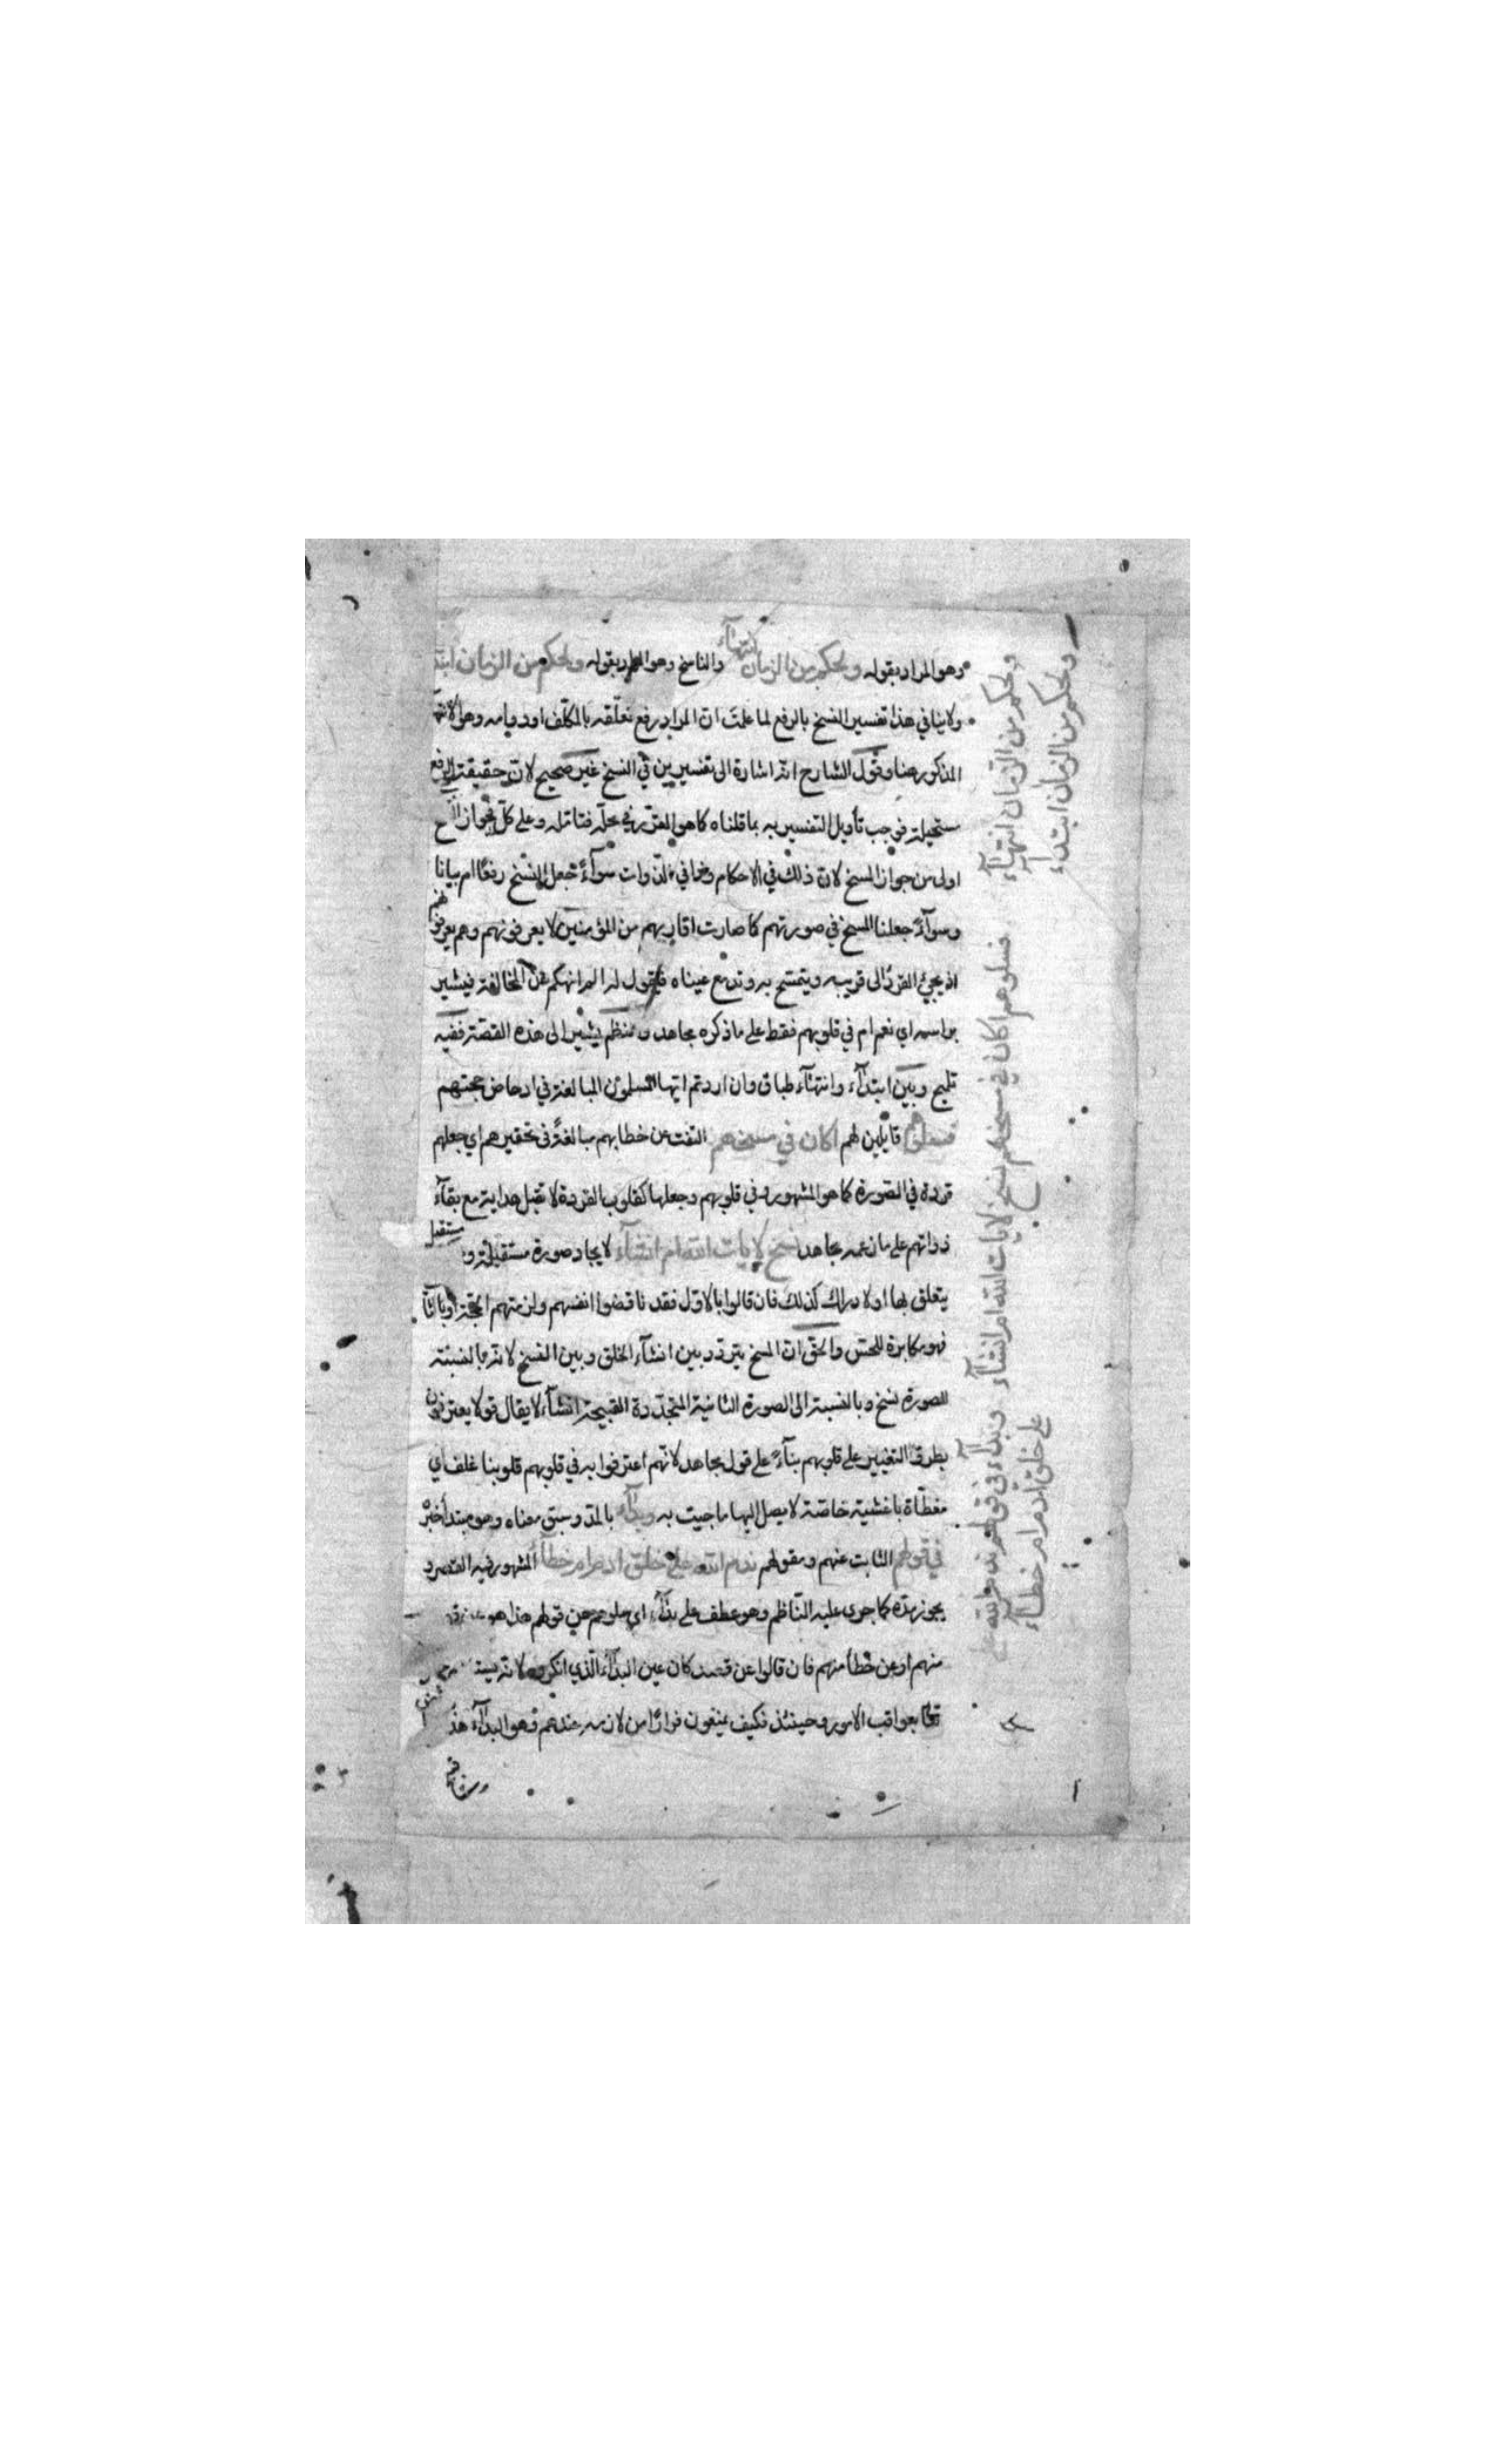 وهو المراد بقوله ولحكم من الزمان انتهآء والناسخ وهو المراد بقوله ولحكم من الزمان ابتد
ولا ينافي هذا تفسير النسخ بالرفع لما علمت ان المراد رفع تعلّقه بالمكلّف او دوامه وهو الانتها
المذكور هنا وقول الشارح انه اشارة الى تفسيرين في النسخ غير صحيح لانّ حقيقة الرفع
مستحيلة فوجب تأويل التفسير به بما قلناه كما هو المقرّر في محلّه فتامّله وعلى كلّ فجواز
اولى من جواز المسخ لان ذلك في الاحكام وهذا في الذوات سوآءً جعل النسخ رفعًا ام بيانا
وسوآءً جعلنا المسخ في صورتهم كما صارت اقاربهم من المؤمنين لا يعرفونهم وهم يعرفونهم
اذ يجيئ القرد الى قريبه ويتمسّح به وتدمع عيناه فيقول له الم انهكم عن المخالفة فيشير
براسه اي نعم ام في قلوبهم فقط على ما ذكره مجاهد و يشير الى هذه القصّة ففيه
تلميح وبين ابتدآء وانتهآء طباق وان اردتم ايها المسلمون المبالغة في ادحاض حجتهم
فسلوهم قايلين لهم اكان في مسخهم التفت عن خطابهم مبالغةً في تحقيرهم اي جعلهم
قردة في الصورة كما هو المشهور وفي قلوبهم وجعلها كقلوب القردة لا تقبل هداية مع بقآء
ذواتهم على ما زعمه مجاهد نسخ لايات الله ام انشآء لايجاد صورة مستقبلة و
يتعلق بها اولا دراك كذلك فان قالوا بالاوّل فقد ناقضوا انفسهم ولزمتهم الحجّة او بالثا
فهو مكابرة للحسّ والحق انّ المسخ يتردّد بين انشآء الخلق وبين النسخ لانه بالنسبة
للصورة نسخ وبالنسبة الى الصورة الثانية المتجدّدة القبيحة انشآء لا يقال قد لا يعترفون
بطرق التغيير على قلوبهم بنآءً على قول مجاهد لانّهم اعترفوا به في قلوبهم قلوبنا غلف اي
مغطّاة باغشية خاصّة لا يصل اليها ما جيت به وبدآء بالمدّ وسبق معناه وهو مبتدأ خبرُ
في قولهم الثابت عنهم ومقولهم ندم الله على خلق ادم ام خطآء المشهور فيه القصر و
يجوز مدّه كما جرى عليه النّاظم وهو عطف على بدآء اي سلوهم عن قولهم هذا هو
منهم او عن خطأ منهم فان قالوا عن قصد كان عين البدآء الّذي انكروه لانه
تعالى بعواقب الامور وحينئذ فكيف يمنعون فرارًا من لازمه عندهم وهو البدآء هذ
ولحكم من الزمان انتهآء
ولحكم من الزمان ابتدآء
فسلوهم اكان في مسخهم نسخ لايات الله ام انشآء
وبدآء في قولهم ندم الله
على خلق ادم ام خطآء